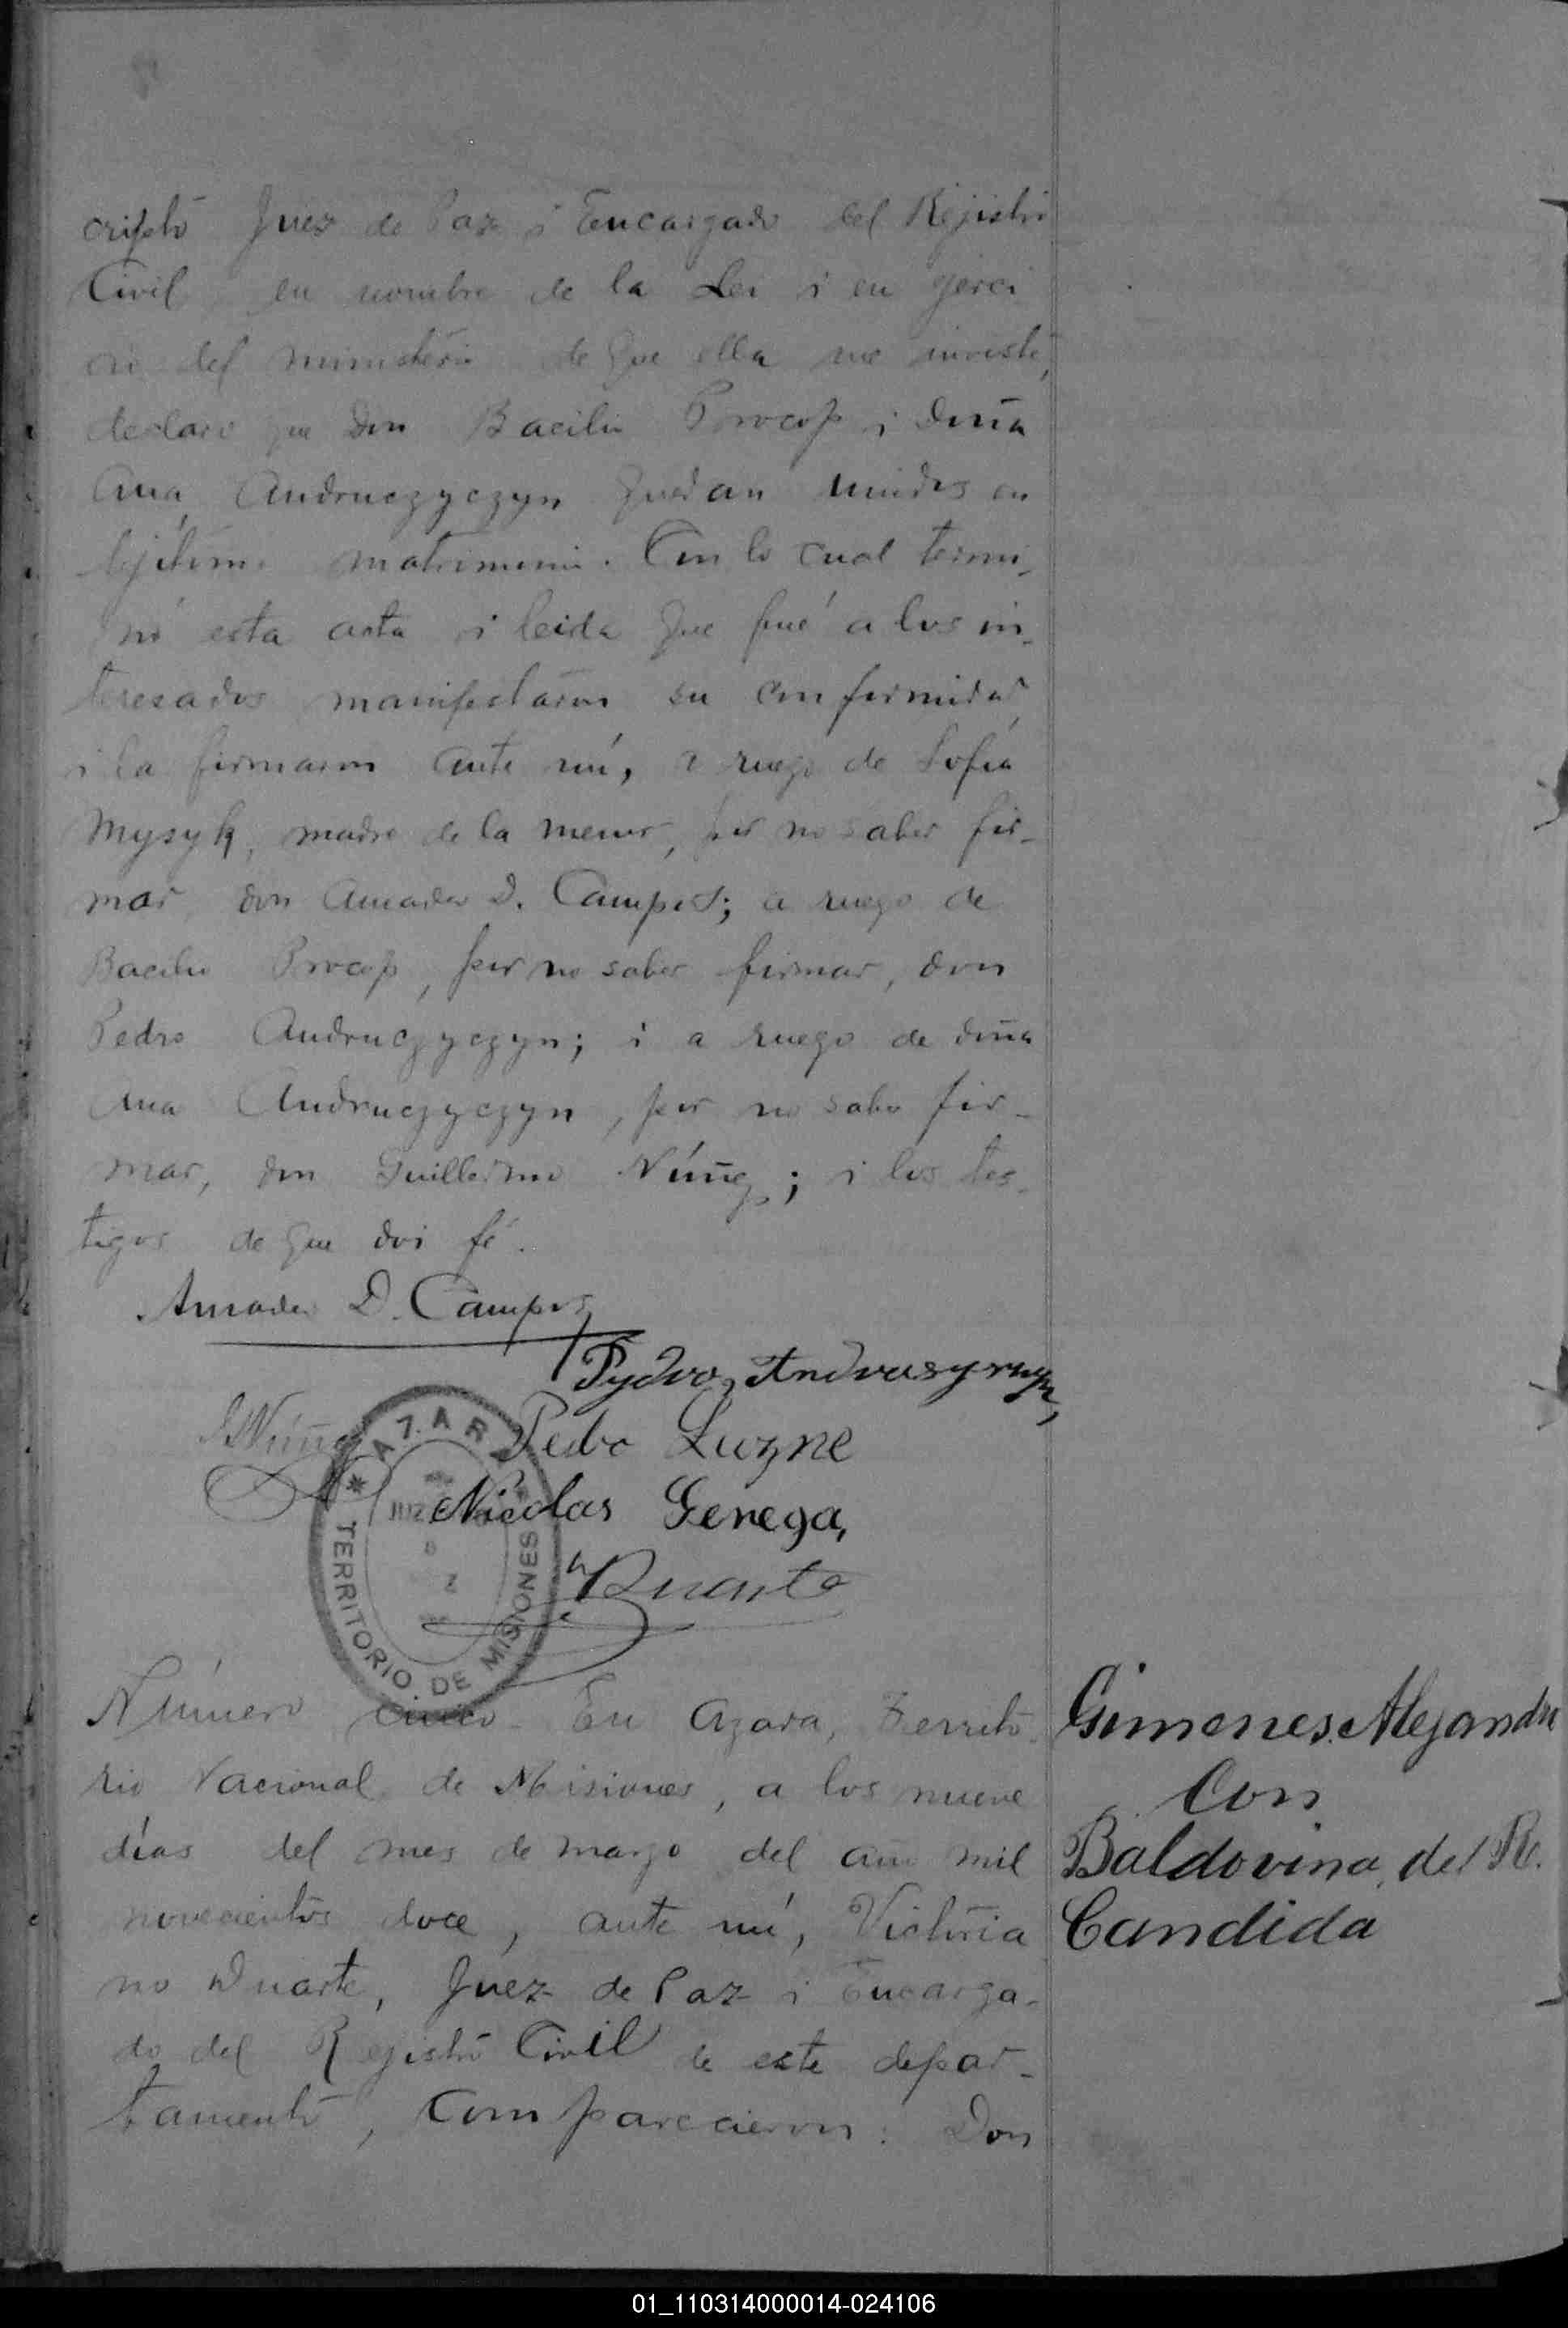 cripto Juez de Paz i Encargado del Rejistro
Civil en nombre de la Lei i en ejerci
cio del ministerio de que ella me inviste,
declaro que Don Bacilio Procop i Doña
Ana Andruczyczyn quedan unidos en
lejítimo matrimonio. Con lo cual termi-
nó esta acta i leida que fué a los in-
teresados manifestaron su conformidad
i la firmaron ante mí, a ruego de Sofía
Mysyk, madre de la menor, por no saber fir-
mar, don Amador D. Campos; a ruego de
Bacilio Procop, por no saber firmar, don
Pedro Andruczyczyn; i a ruego de doña
Ana Andruczyczyn, por no saber fir-
mar, don Guillermo Núñez; i los tes-
tigos de que doi fé.
Amador D. Campos
Pydro Andruszyszyn
GNúñez
Pedro Luzne
Nicolas Genega,
VDuarte
* AZARA *
JUZ
TERRITORIO DE MISIONES
Número cinco- En Azara, Territo-
rio Nacional de Misiones, a los nueve
días del mes de marzo del año mil
novecientos doce, ante mí, Victoria
no Duarte, Juez de Paz i Encarga-
do del Rejistro Civil de este depar-
tamento, comparecieron: Don
Gimenes Alejandro
Con
Baldovina del R.
Candida
01_110314000014-024106